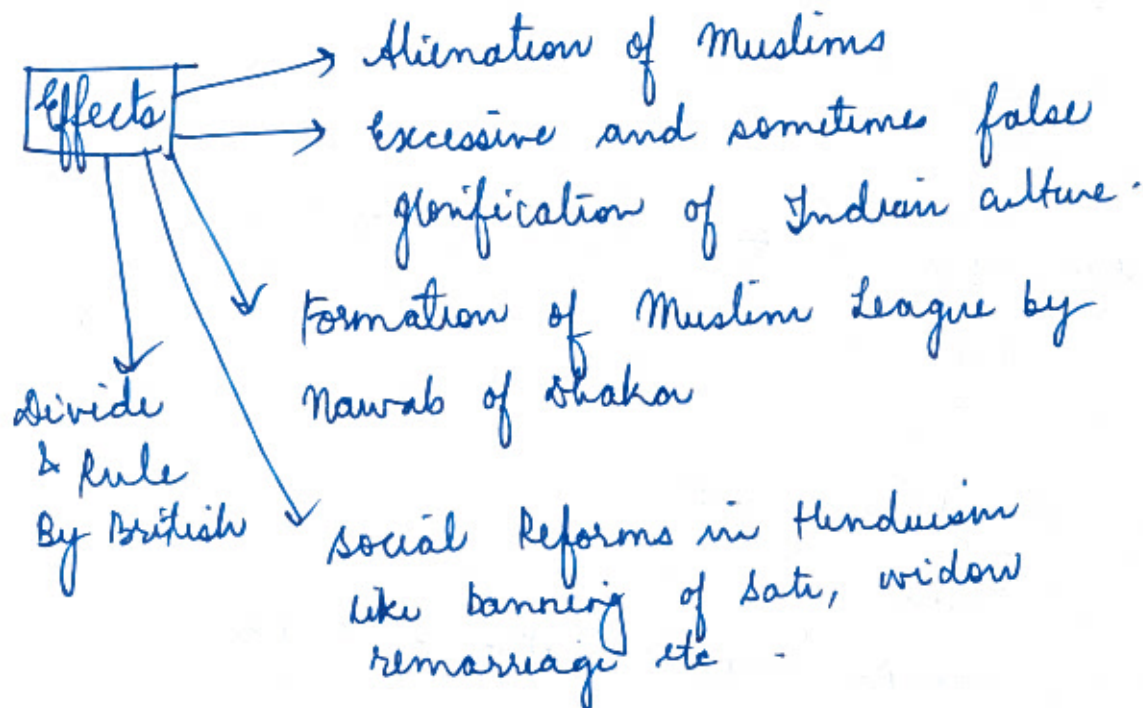 Effects
Alienation of Muslims
Excessive and sometimes false
glorification of Indian culture.
Formation of Muslim League by
Nawab of Dhaka
Divide
& Rule
By British
Social Reforms in Hinduism
like banning of Sati, widow
remarriage etc.